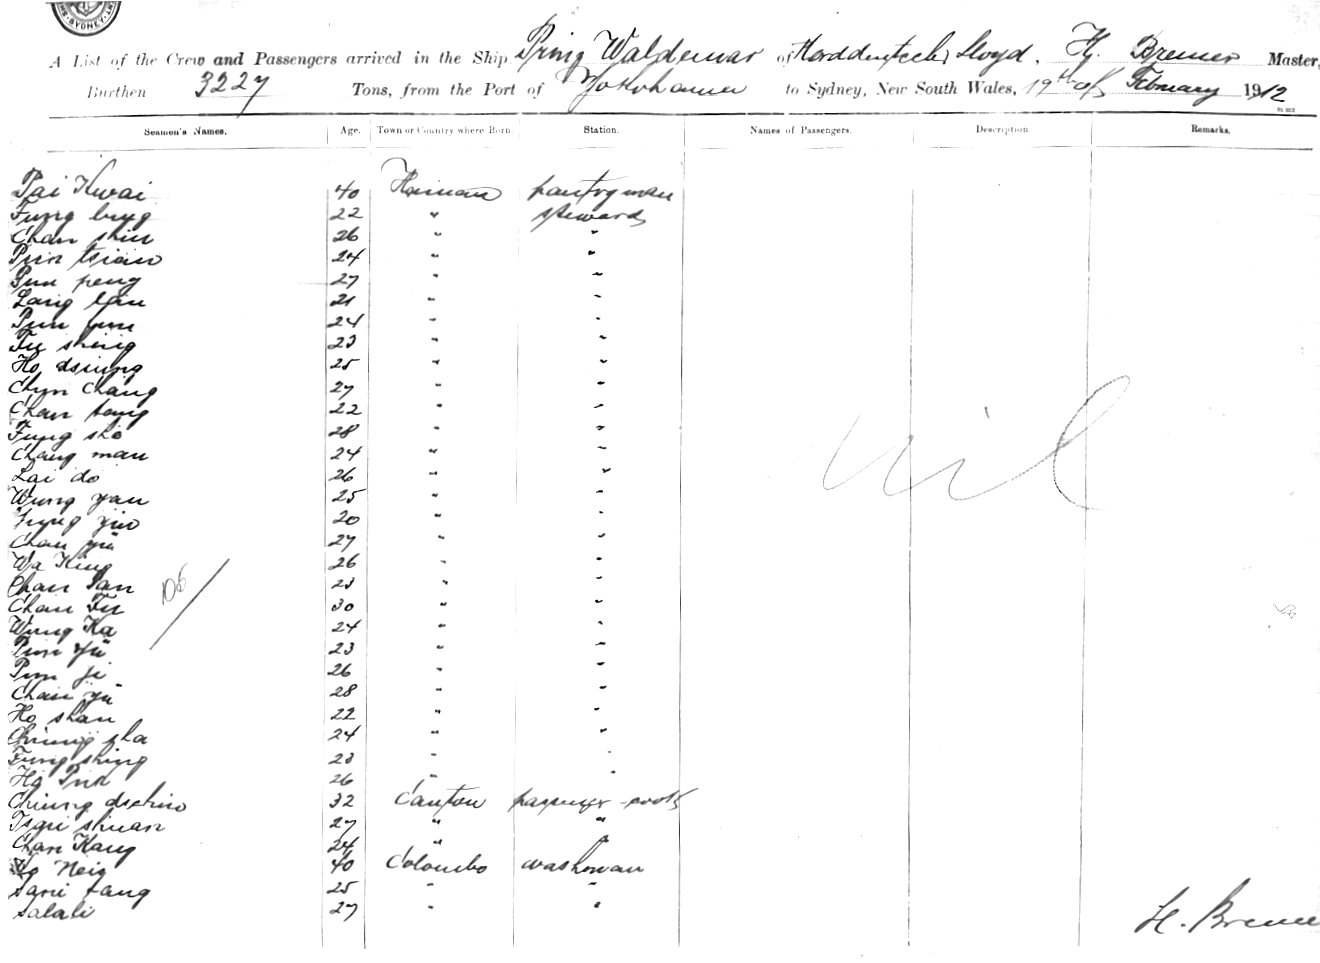 SYDNEY
A List of the Crew and Passengers arrived in the Ship Prinz Waldemar of Norddeutscher Lloyd, H. Bremer Master,
Burthen 3227 Tons, from the Port of Yokohama to Sydney, New South Wales, 19th of February 1912
Seamen's Names. Age. Town or Country where Born Station. Names of Passengers. Description Remarks.
Tai Kwai 40 Hainan pantryman
Fung 22 " stewards
Chan shin 26 " "
Pun tsian 24 " "
Pun peng 27 " "
Lang 21 " "
Pun 24 " "
Fu shing 23 " "
Ho dsiung 25 " "
Chun Chang 27 " "
Chan tong 22 " "
Fung sho 28 " "
Chang man 24 " "
Lai do 26 " "
Wung yan 25 " "
Fung 20 " "
Chan yü 27 " "
Wa King 26 " "
Chan San 23 " "
Chan Fu 30 " "
Wung Ka 24 " "
Pun Yü 23 " "
Pun ji 26 " "
Chan yü 28 " "
Ho shan 22 " "
Chiung sha 24 " "
Fung shing 23 " "
Ho Pun 26 " "
Chiung dschin 32 Canton passenger-cooks
Tsai shuan 27 " "
Chan Kang 24 " "
Neig 40 Colombo washman
tang 25 " "
Salali 27 " "
nil
106
H. Breme